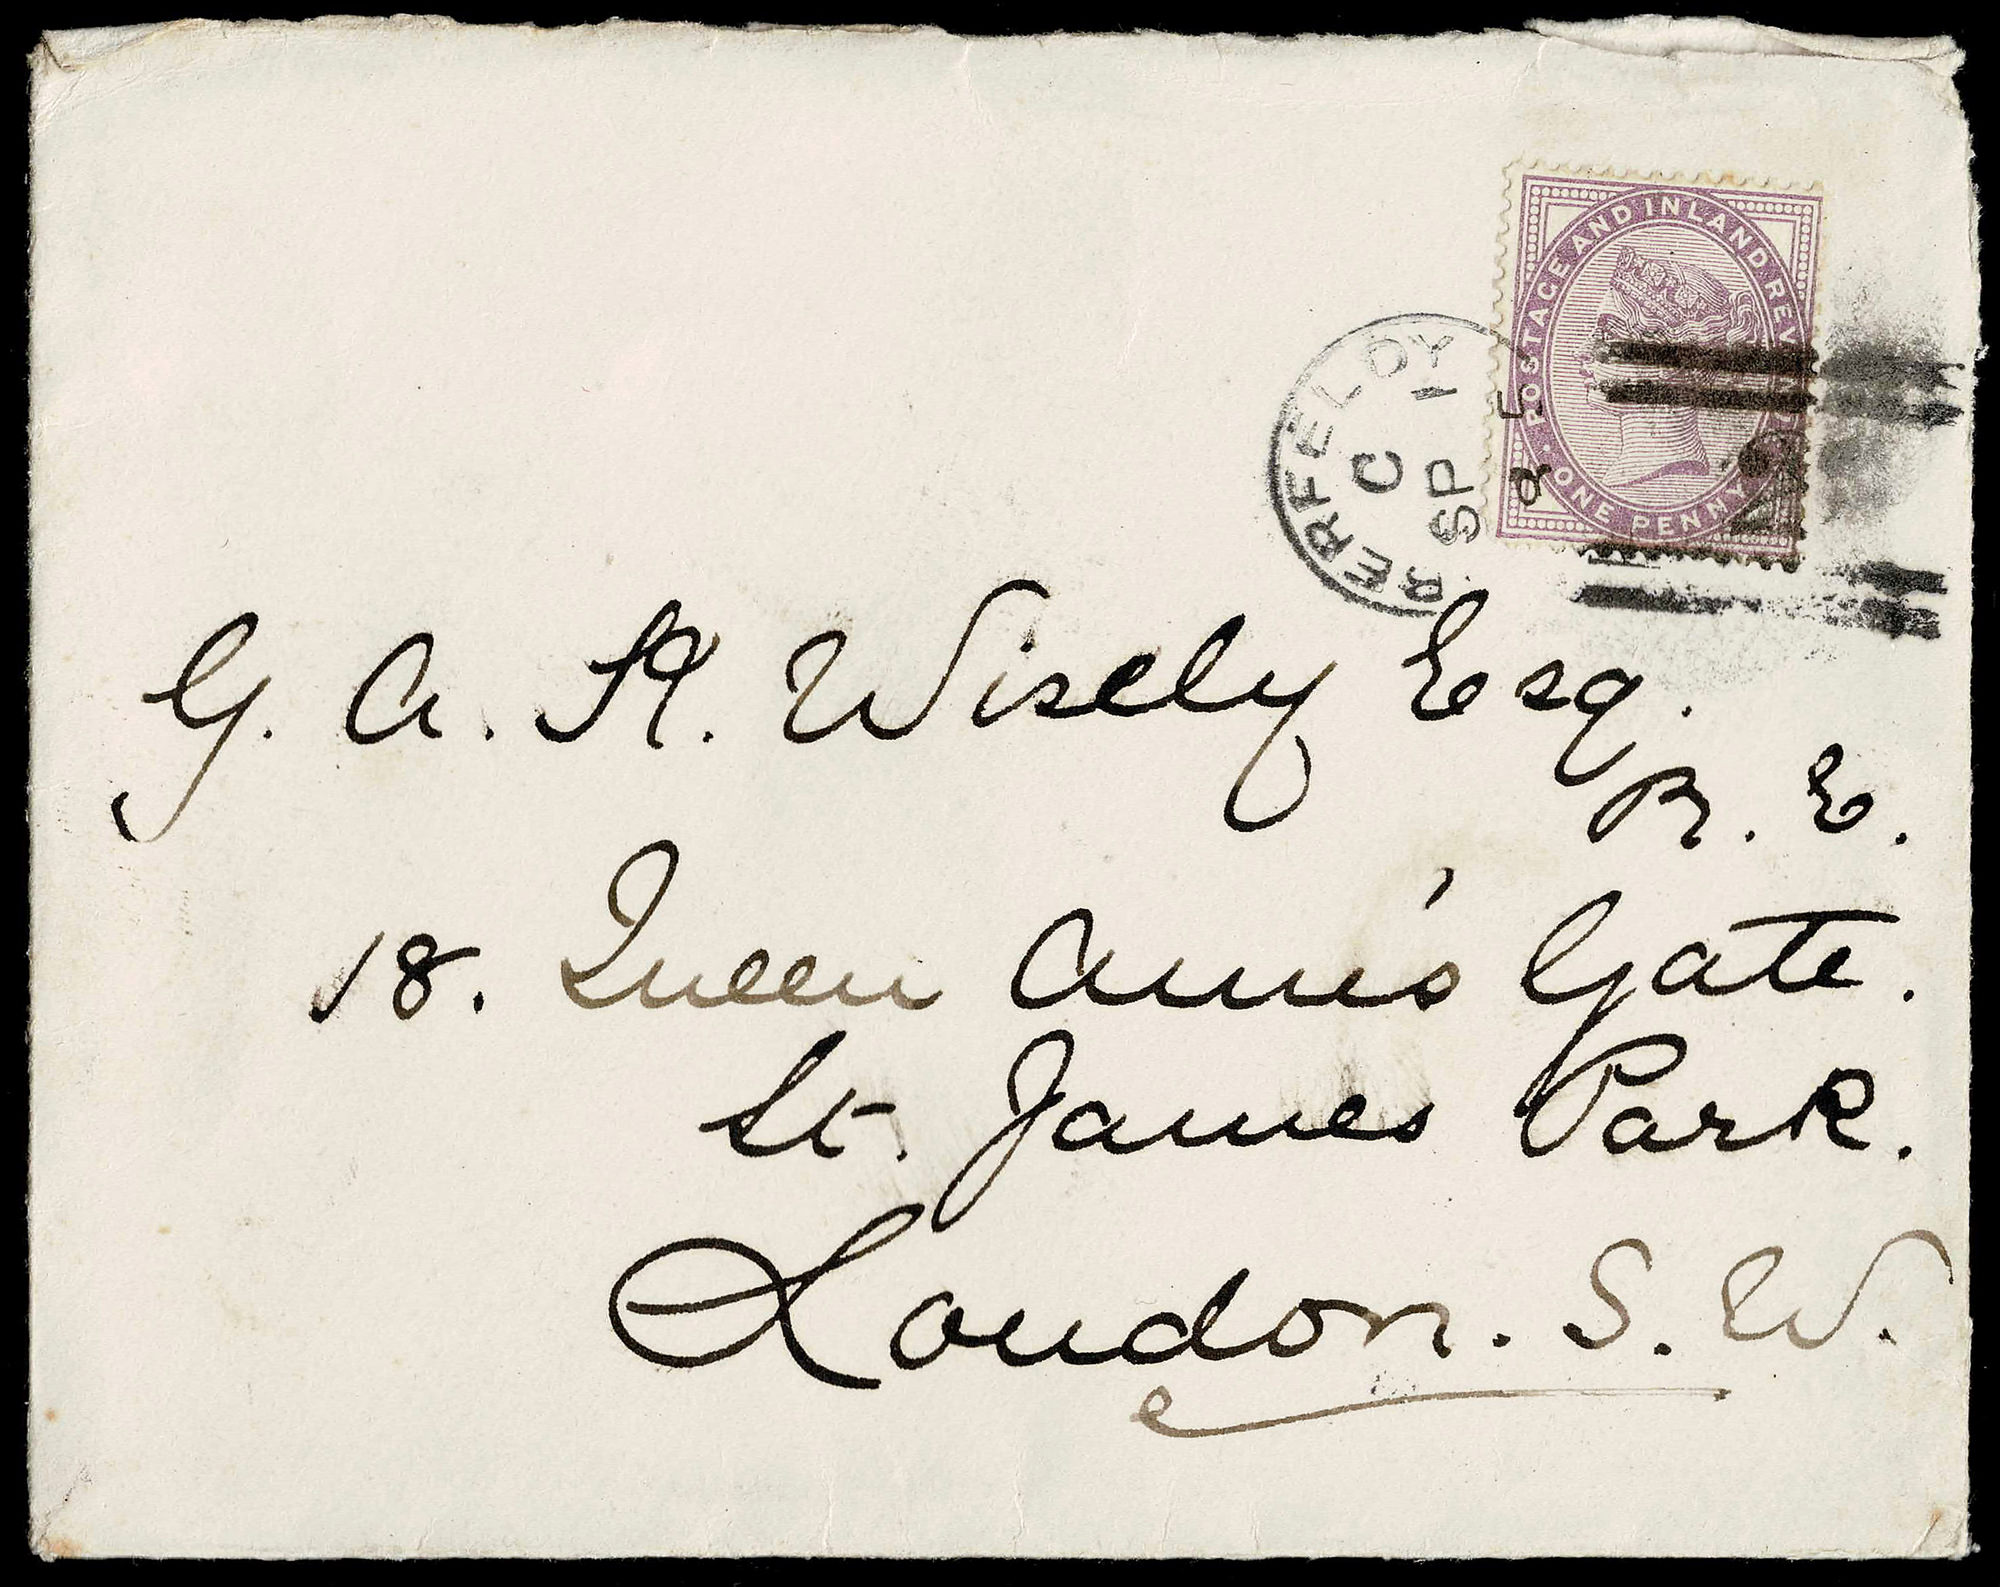 POSTAGE AND INLAND REVENUE
ONE PENNY
ABERFELDY
C
SP 1
G. A. K. Wisely Esq.
R. E.
18. Queen Anne's Gate.
St. James Park.
London. S. W.